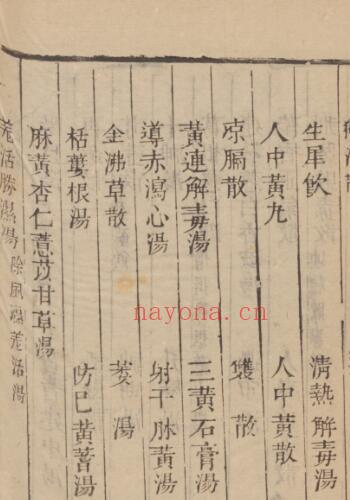 生犀飲 清熱解毒湯
人中黃丸 人中黃散
凉膈散 雙散
黃連解毒湯 三黃石膏湯
導赤瀉心湯 射干麻黃湯
金沸草散 葳湯
栝蔞根湯 防巳黃蓍湯
麻黃杏仁薏苡甘草湯
羗活勝濕湯 除風濕羗活湯
nayona.cn